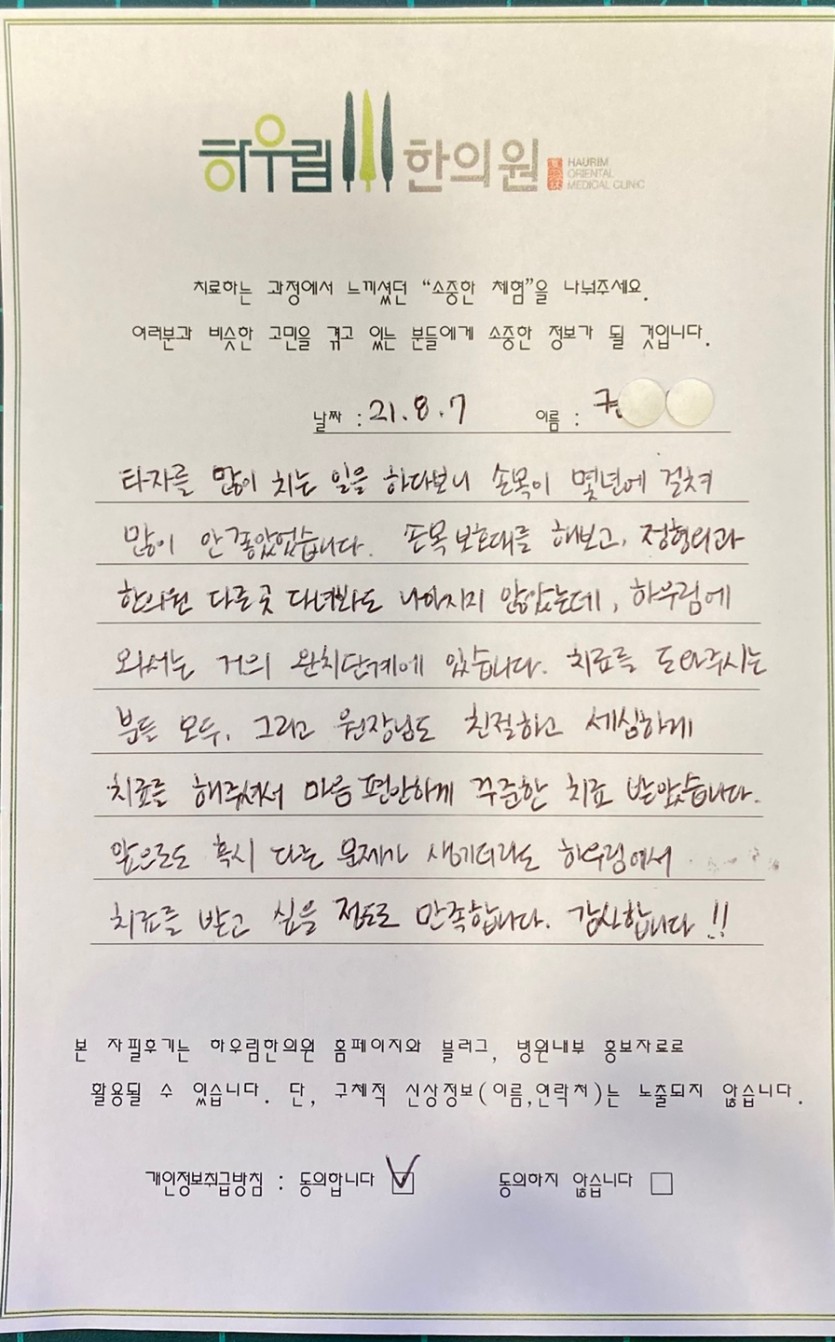 하우림 한의원 HAURIM
ORIENTAL
MEDICAL CLINIC
치료하는 과정에서 느끼셨던 “소중한 체험”을 나눠주세요.
여러분과 비슷한 고민을 겪고 있는 분들에게 소중한 정보가 될 것입니다.
날짜 : 21.8.7 이름 :
타자를 많이 치는 일을 하다보니 손목이 몇년에 걸쳐
많이 안좋았었습니다. 손목보호대를 해보고, 정형외과
한의원 다른곳 다녀봐도 나아지지 않았는데, 하우림에
와서는 거의 완치단계에 있습니다. 치료를 도와주시는
분들 모두, 그리고 원장님도 친절하고 세심하게
치료를 해주셔서 마음 편안하게 꾸준한 치료 받았습니다.
앞으로도 혹시 다른 문제가 생기더라도 하우림에서
치료를 받고 싶을 정도로 만족합니다. 감사합니다!!
본 자필후기는 하우림한의원 홈페이지와 블러그, 병원내부 홍보자료로
활용될 수 있습니다. 단, 구체적 신상정보(이름,연락처)는 노출되지 않습니다.
개인정보취급방침 : 동의합니다 동의하지 않습니다